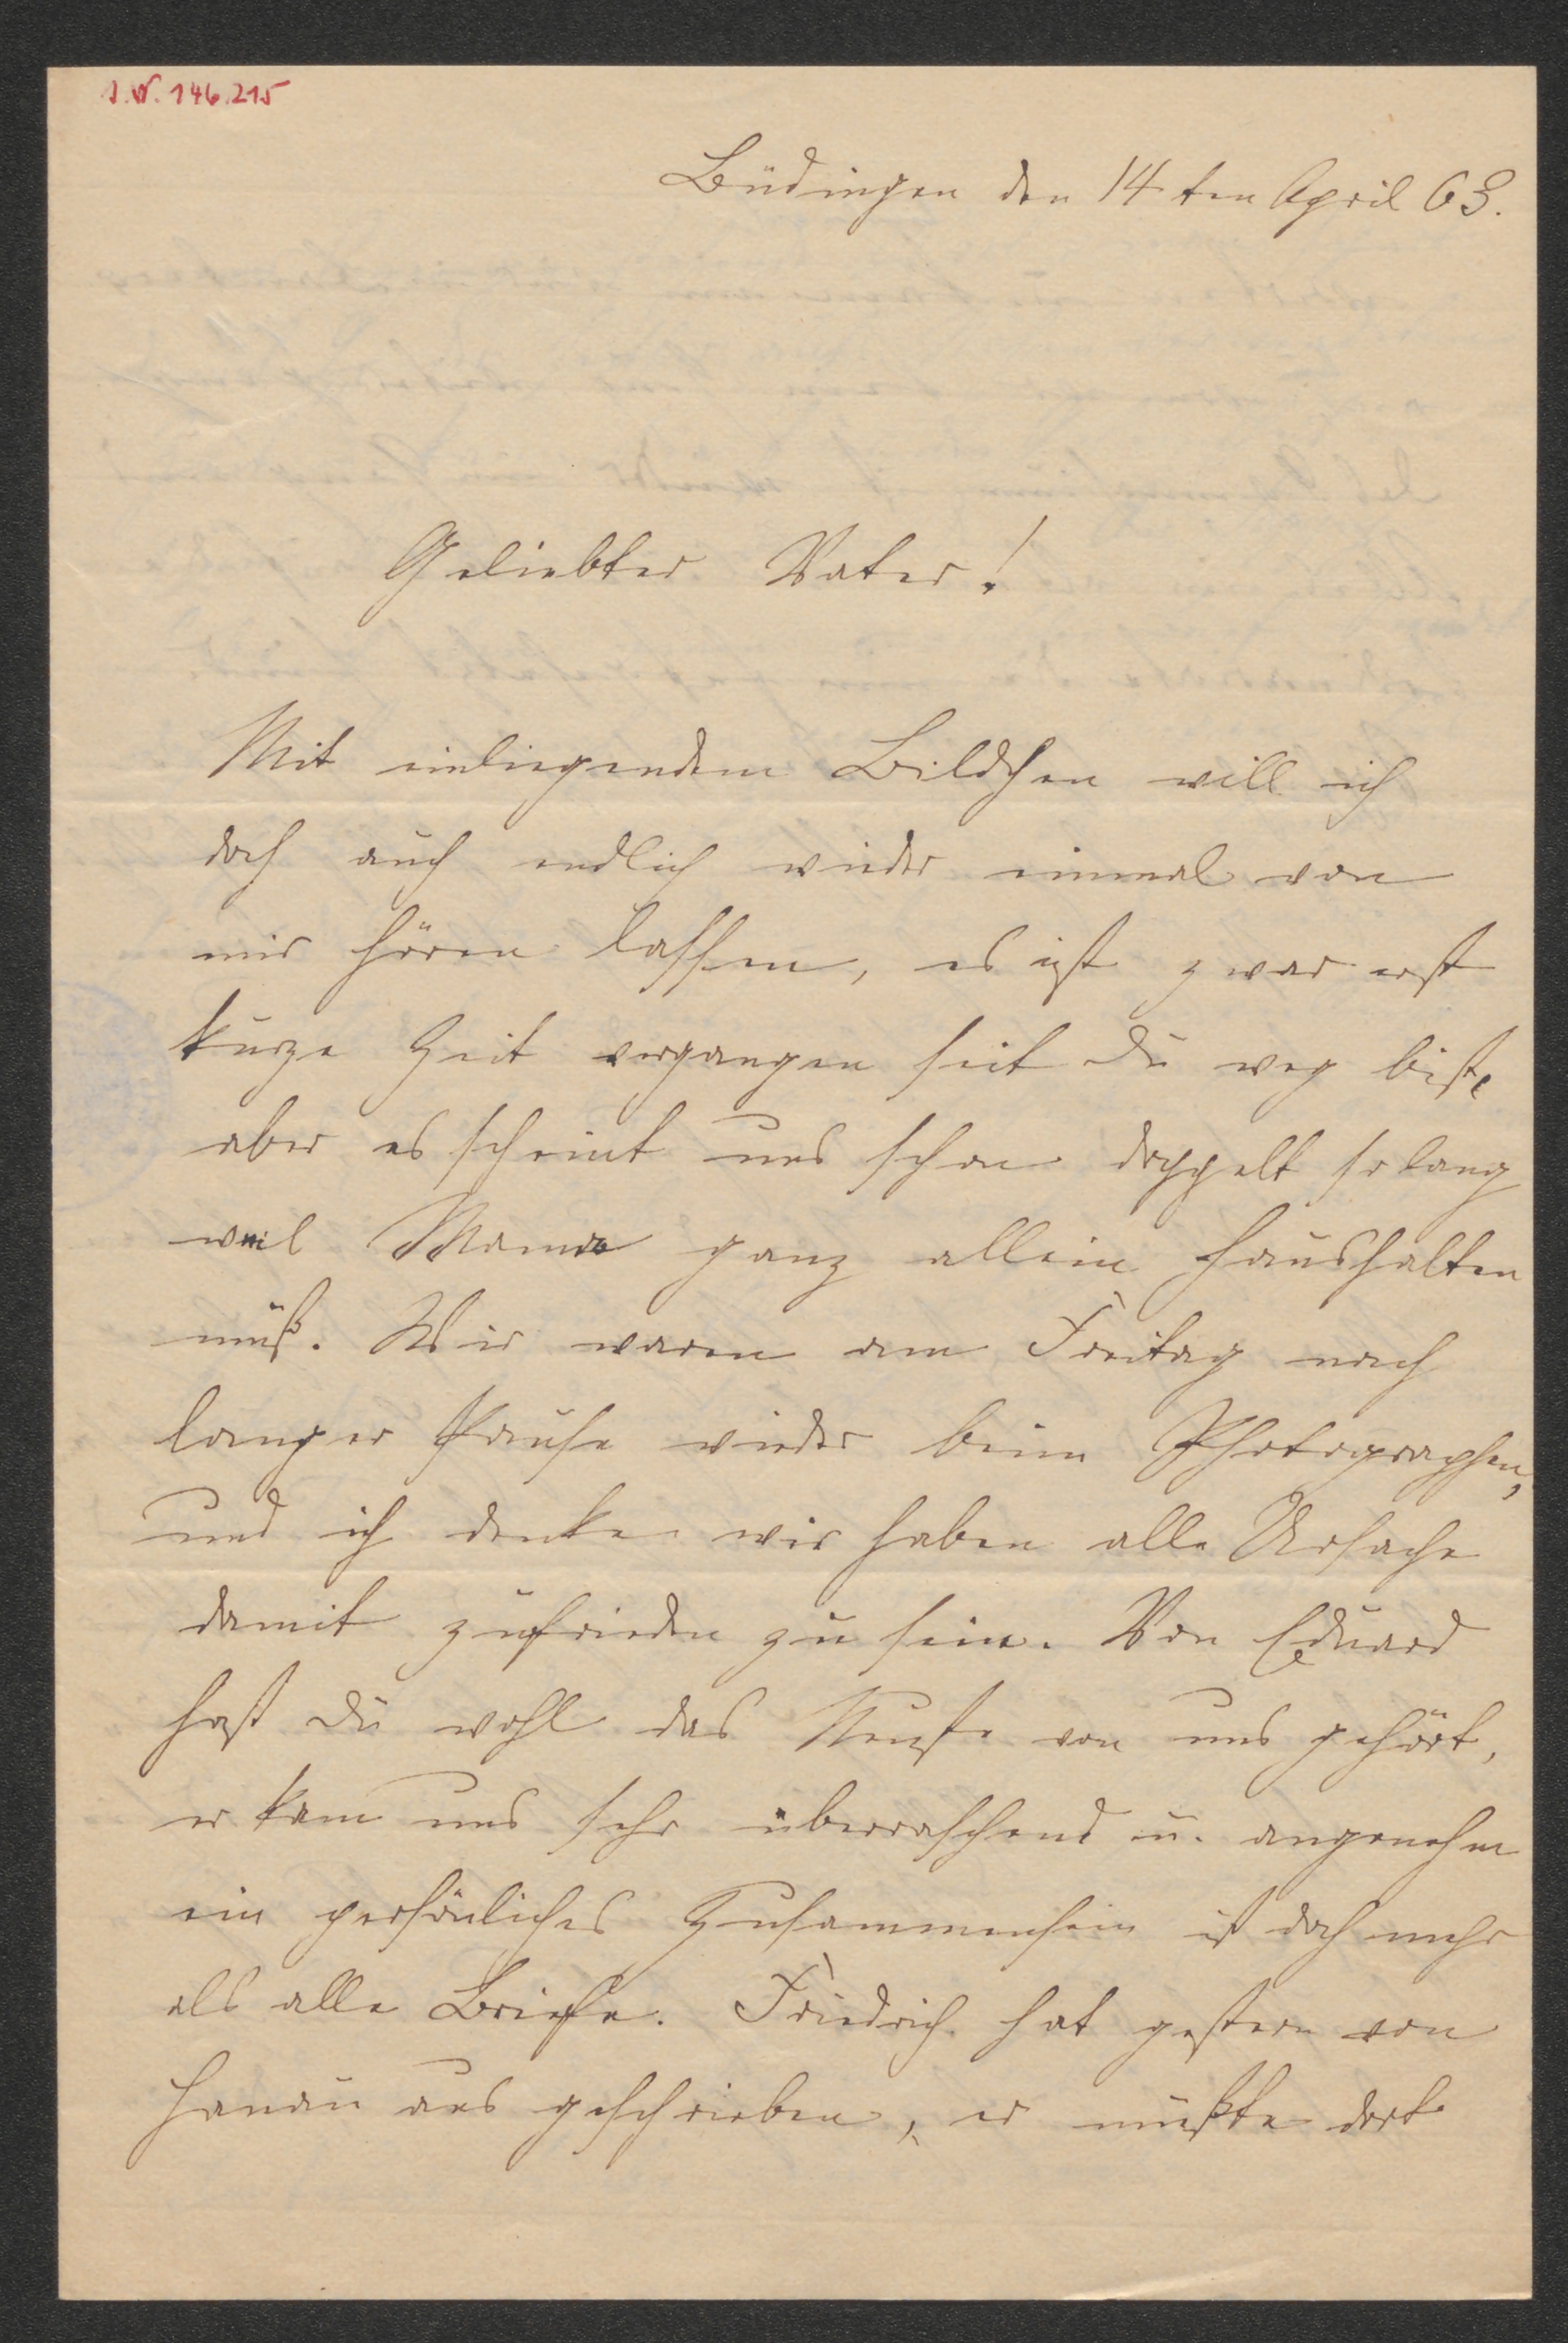 I.N. 146.215
Büdingen den 14ten April 63.
Geliebter Vater!
Mit einliegendem Bildchen will ich
doch auch endlich wieder einmal von
mir hören lassen, es ist zwar erst
kurze Zeit vergangen seit Du weg bist,
aber es scheint uns schon doppelt so lang
weil Mama ganz allein haushalten
muß. Wir waren am Freitag nach
langer Pause wieder beim Photographen,
und ich denke wir haben alle Ursache
damit zufrieden zu sein. Von Eduard
hast Du wohl das Neuste von uns gehört,
er kam uns sehr überraschend u. angenehm
ein persönliches Zusammensein ist doch mehr
als alle Briefe. Friedrich hat gestern von
Hanau aus geschrieben, er mußte dort